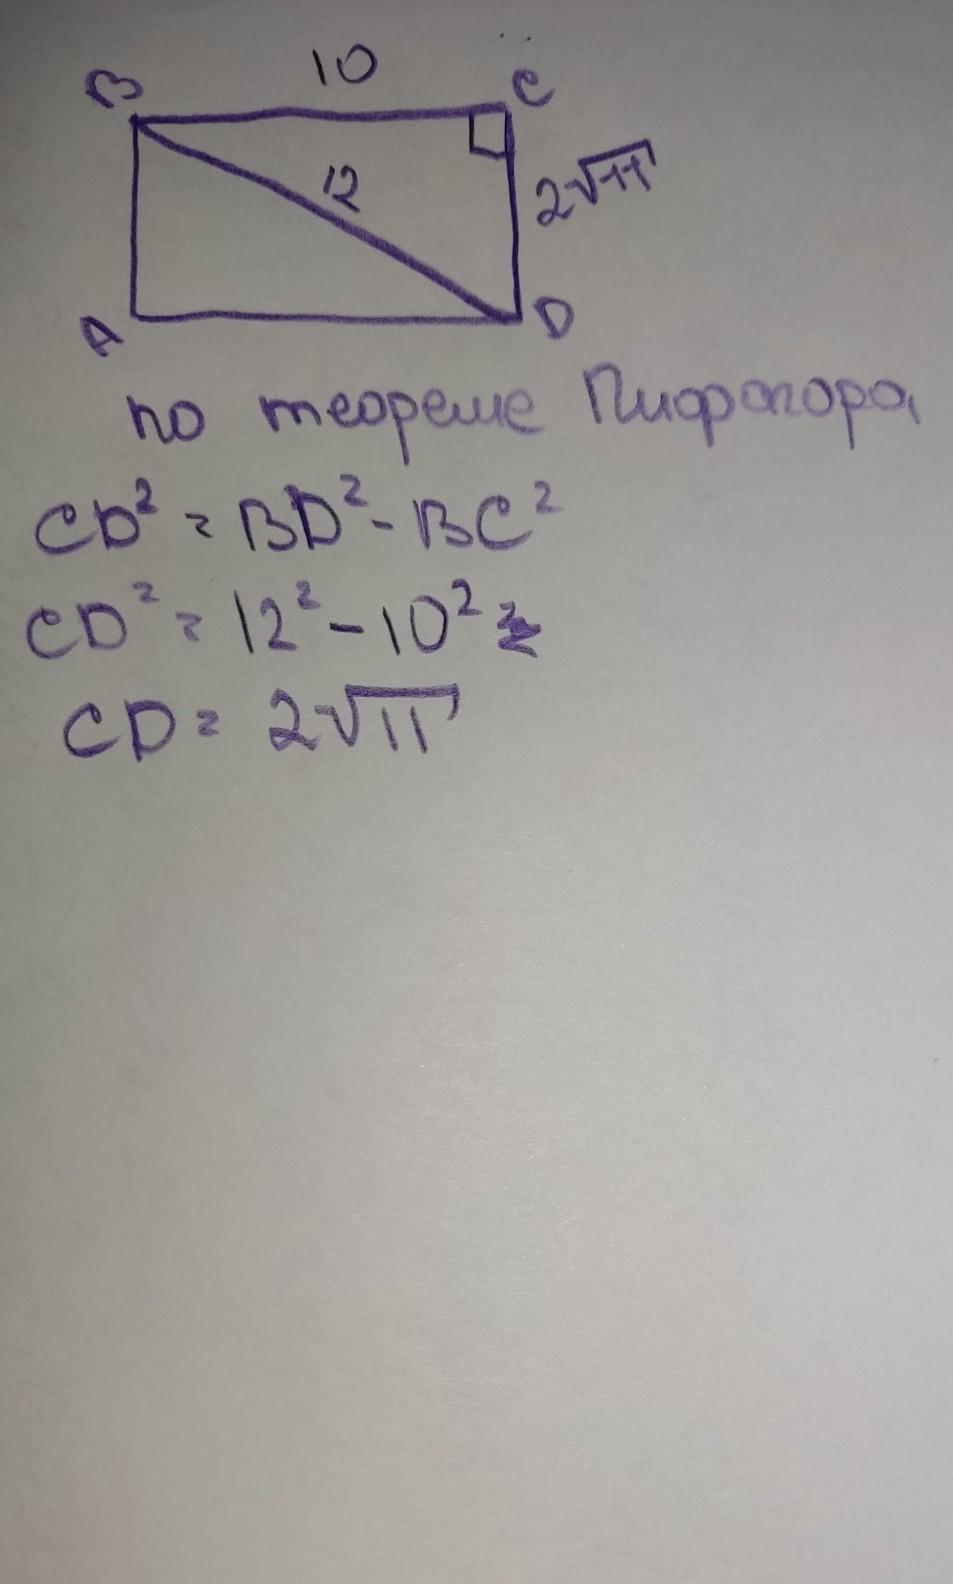 10
B
C
12
2√11
A
D
по теореме Пифагора
CD² = BD² - BC²
CD² = 12² - 10²
CD = 2√11